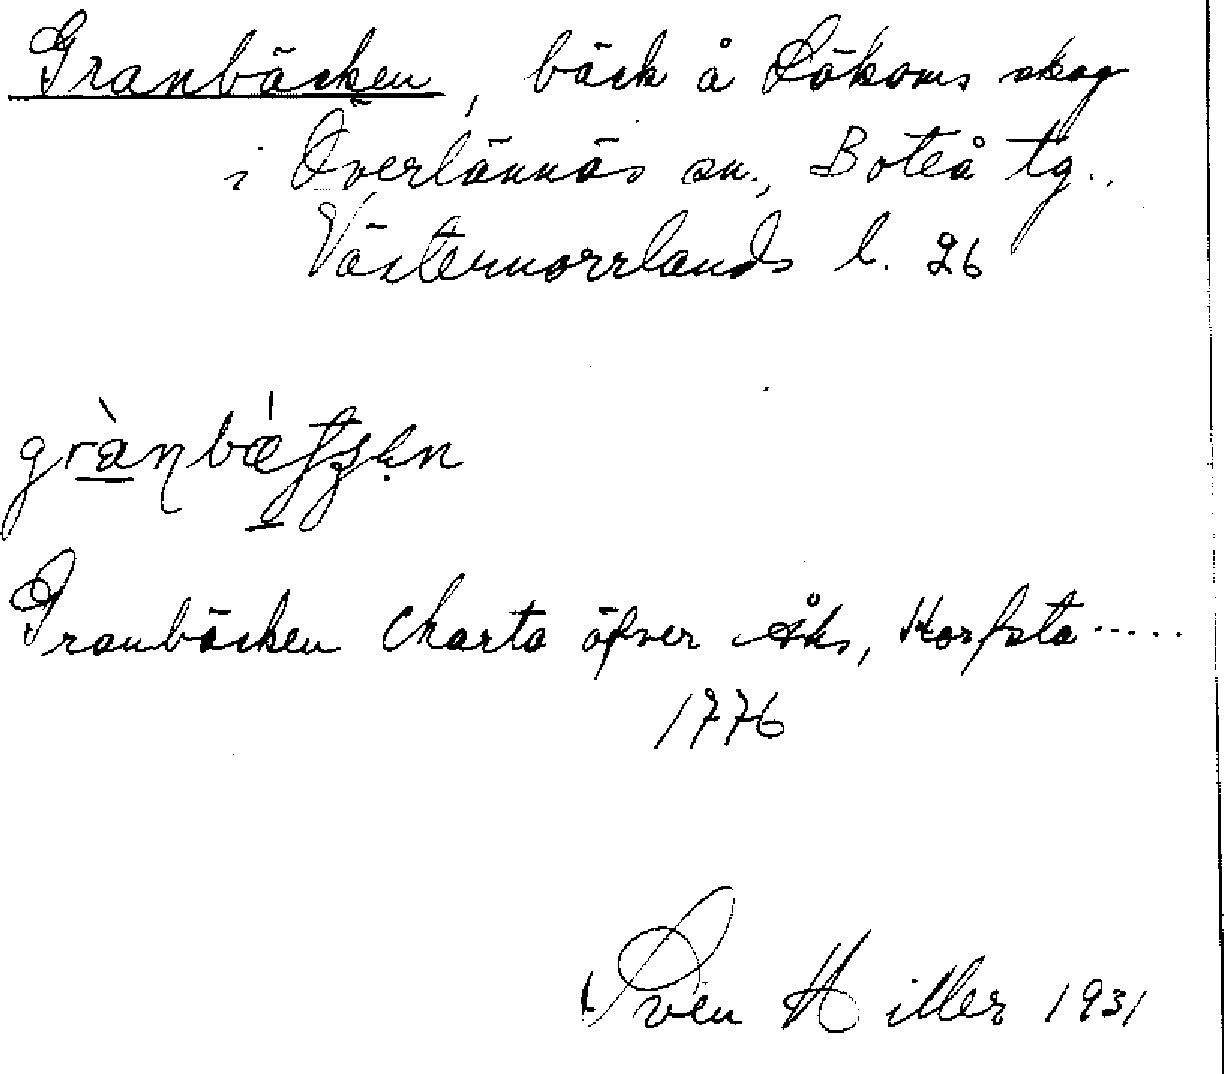 Granbäcken, bäck å Lökoms skog
i Överlännäs sn., Boteå tg..
Västernorrlands l. 26
Granbäcken Charta öfver Åks, Korfsta.....
1776
Sven Hiller 1931